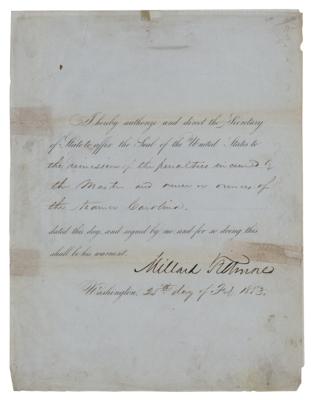 I hereby authorize and direct the Secretary
of State to affix the Seal of the United States to
the remission of the penalties incurred by
the Master and owner or owners of
the steamer Carolina.
dated this day, and signed by me, and for so doing this
shall be his warrant.
Millard Fillmore
Washington, 25th day of Feb. 1853.